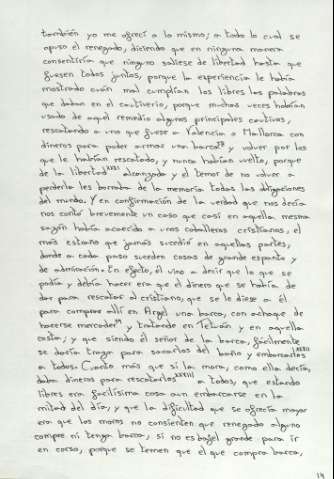 también yo me ofrecí a lo mismo; a todo lo cual se
opuso el renegado, diciendo que en ninguna manera
consentiría que ninguno saliese de libertad hasta que
fuesen todos juntos, porque la experiencia le había
mostrado cuán mal cumplían los libres las palabras
que daban en el cautiverio, porque muchas veces habían
usado de aquel remedio algunos principales cautivos,
rescatando a uno que fuese a Valencia o Mallorca con
dineros para poder armar una barca y volver por los
que le habían rescatado, y nunca habían vuelto, porque
de la libertad alcanzada y el temor de no volver a
perderla les borraba de la memoria todas las obligaciones
del mundo. Y en confirmación de la verdad que nos decía
nos contó brevemente un caso que casi en aquella mesma
sazón había acaecido a unos caballeros cristianos, el
más estraño que jamás sucedió en aquellas partes,
donde a cada paso suceden cosas de grande espanto y
de admiración. En efecto, él vino a decir que lo que se
podía y debía hacer era que el dinero que se había de
dar para rescatar al cristiano, que se le diese a él
para comprar allí en Argel una barca, con achaque de
hacerse mercader y tratante en Tetuán y en aquella
costa; y que siendo él señor de la barca, fácilmente
se daría traza para sacarlos del baño y embarcarlos
a todos. Cuanto más que si la mora, como ella decía,
daba dineros para rescatarlos a todos, que estando
libres era facilísima cosa aun embarcarse en la
mitad del día, y que la dificultad que se ofrecía mayor
era que los moros no consienten que renegado alguno
compre ni tenga barca, si no es bajel grande para ir
en corso, porque se temen que el que compra barca,